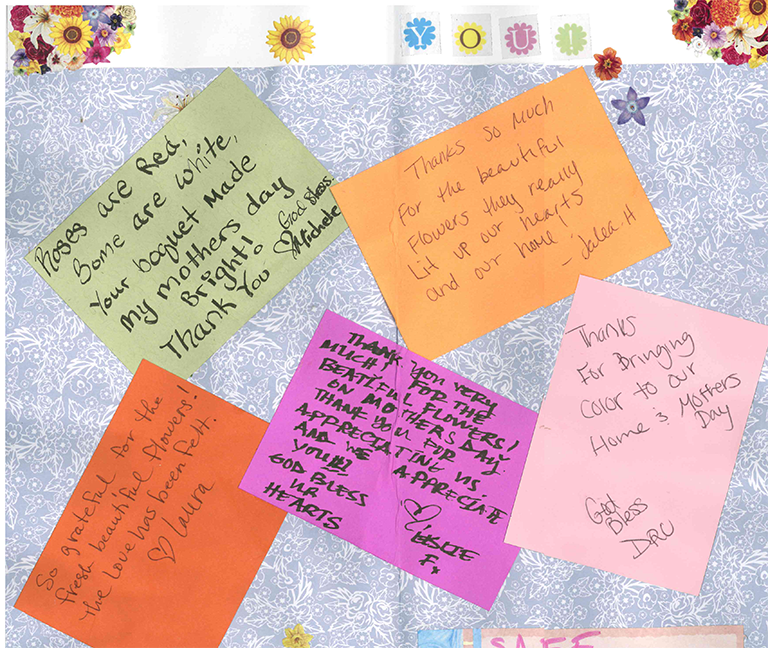 YOU!
Roses are Red,
Some are white,
Your boquet Made
my mothers day
Bright!
Thank You
God Bless
Michele
Thanks so Much
For the beautiful
Flowers they really
Lit up our hearts
and our home
- Jalea. H
Thanks
For Bringing
Color to our
Home & Mothers
Day
God
Bless
DRU
THANK YOU VERY
MUCH! FOR THE
BEATIFUL FLOWERS!
ON MOTHERS DAY.
THANK YOU FOR
APPRECIATING US
AND WE APPRECIATE
YOU!!!
GOD BLESS
UR
HEARTS
LESLIE
F.
So grateful for the
fresh beautiful flowers!
the love has been felt.
Laura
SAFE